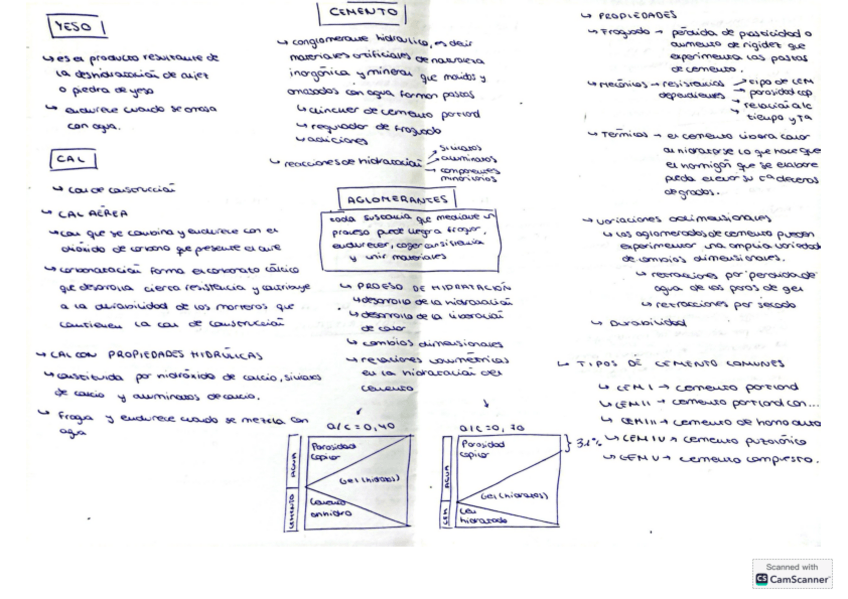 YESO
↳ es el producto resultante de
la deshidratación de aljez
o piedra de yeso
↳ endurece cuando se amasa
con agua.
CAL
↳ cal de construcción
↳ CAL AÉREA
↳ cal que se combina y endurece con el
dióxido de carbono que presente el aire
↳ carbonatación forma el carbonato cálcico
que desarrolla cierta resistencia y contribuye
a la durabilidad de los morteros que
contienen la cal de construcción
↳ CAL CON PROPIEDADES HIDRÚLICAS
↳ constituida por hidróxido de calcio, silicatos
de calcio y aluminatos de calcio.
↳ Fragua y endurece cuando se mezcla con
agua
CEMENTO
↳ conglomerante hidráulico, es decir
materiales artificiales de naturaleza
inorgánica y mineral que molidos y
amasados con agua forman pastas
↳ clincuer de cemento portland
↳ regulador de fraguado
↳ adiciones
↳ reacciones de hidratación
silicatos
aluminatos
componentes
minoritarios
AGLOMERANTES
toda sustancia que mediante un
proceso puede llegar a fraguar,
endurecer, coger consistencia
y unir materiales
↳ PROCESO DE HIDRATACIÓN
↳ desarrollo de la hidratación
↳ desarrollo de la liberación
de calor
↳ cambios dimensionales
↳ relaciones volumétricas
en la hidratación del
cemento
a/c = 0,40
AGUA
CEMENTO
Porosidad
capilar
Gel (hidratos)
Cemento
anhidro
a/c = 0,70
AGUA
CEM
Porosidad
capilar
Gel (hidratos)
Cem
hidratado
↳ PROPIEDADES
↳ Fraguado → pérdida de plasticidad o
aumento de rigidez que
experimenta las pastas
de cemento.
↳ Mecánicas → resistencias
dependientes
tipo de CEM
porosidad cap
relación a/c
tiempo y Tª
↳ Térmicas → el cemento libera calor
al hidratarse lo que hace que
el hormigón que se elabore
pueda elevar su Tª decenas
de grados.
↳ variaciones adimensionales
↳ Los aglomerados de cemento pueden
experimentar una amplia variedad
de cambios dimensionales.
↳ retracciones por pérdida de
agua de los poros de gel
↳ retracciones por secado
↳ Durabilidad
↳ TIPOS DE CEMENTO COMUNES
↳ CEM I → cemento portland
↳ CEM II → cemento portland con...
↳ CEM III → cemento de horno alto
↳ CEM IV → cemento puzolánico
↳ CEM V → cemento compuesto.
Scanned with
CS CamScanner